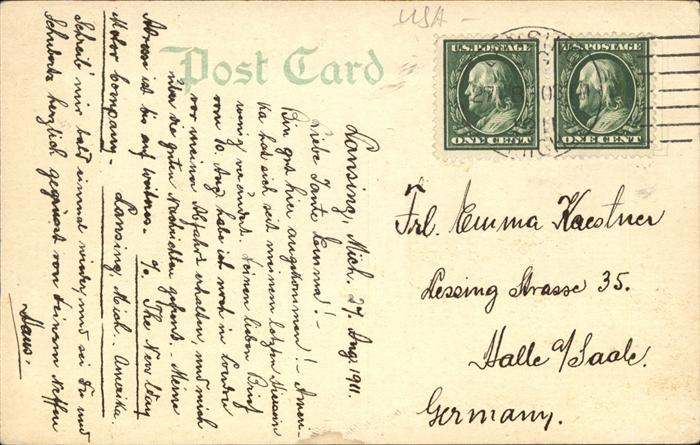 USA
Post Card
U.S. POSTAGE
ONE CENT
U.S. POSTAGE
ONE CENT
Lansing, Mich. 27. Aug. 1911.
Liebe Tante Emma! -
Bin gut hier angekommen! - Ameri-
ka hat sich seit meinem letzten Hiersein
wenig verändert. Deinen lieben Brief
vom 10. Aug. habe ich noch in London
vor meiner Abfahrt erhalten, und mich
über die guten Nachrichten gefreut. - Meine
Adresse ist bis auf weiteres: c/o The New Way
Motor Company. Lansing, Mich. Amerika.
Schreib' mir bald einmal wieder, und sei Du und
herzlich gegrüsst von Deinem Neffen
Hans.
Frl. Emma Kaestner
Lessing Strasse 35.
Halle a/Saale.
Germany.